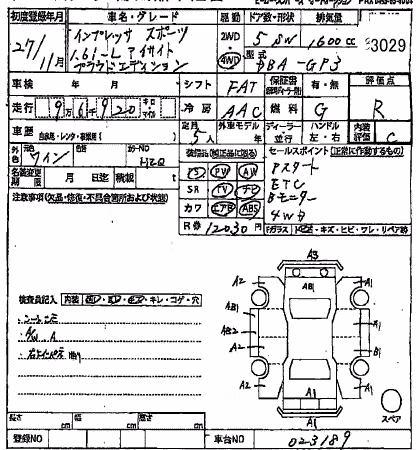 初度登録年月 車名・グレード 駆動 ドア数・形状 排気量
27/11月 インプレッサ スポーツ 2WD 5 SW 1,600cc 3029
1.6i-L アイサイト 4WD 型式
プラウドエディション DBA-GP3
車検 年 月 シフト FAT 保証書 有・無 評価点
走行 9万6千920 キロ マイル 冷房 AAC 燃料 G R
車歴 自家用・レンタ・事業用 定員 5人 外車モデル 年 ディーラー 並行 ハンドル 左・右 内装評価 C
外色 元色 ワイン 色替 カラーNO H2Q 装備品(純正品に図る) セールスポイント(正常に作動するもの)
名義変更期限 月 日迄 積載 t PS PW AW Pスタート
注意事項(欠品・修復・不具合箇所および状態) SR TV ナビ ETC
カワ エアB ABS Bモニター
4WD
R券 12030円 Fガラス キズ・ヒビ・ワレ・リペア
A3
A2 AB1 A1
検査員記入 内装 キレ・コゲ・穴
AB1 A1
AB2
A/W A A2 B1
A2 A1
A1
A1
スペア
長さ cm 幅 cm 高さ cm
登録NO 車台NO 023189